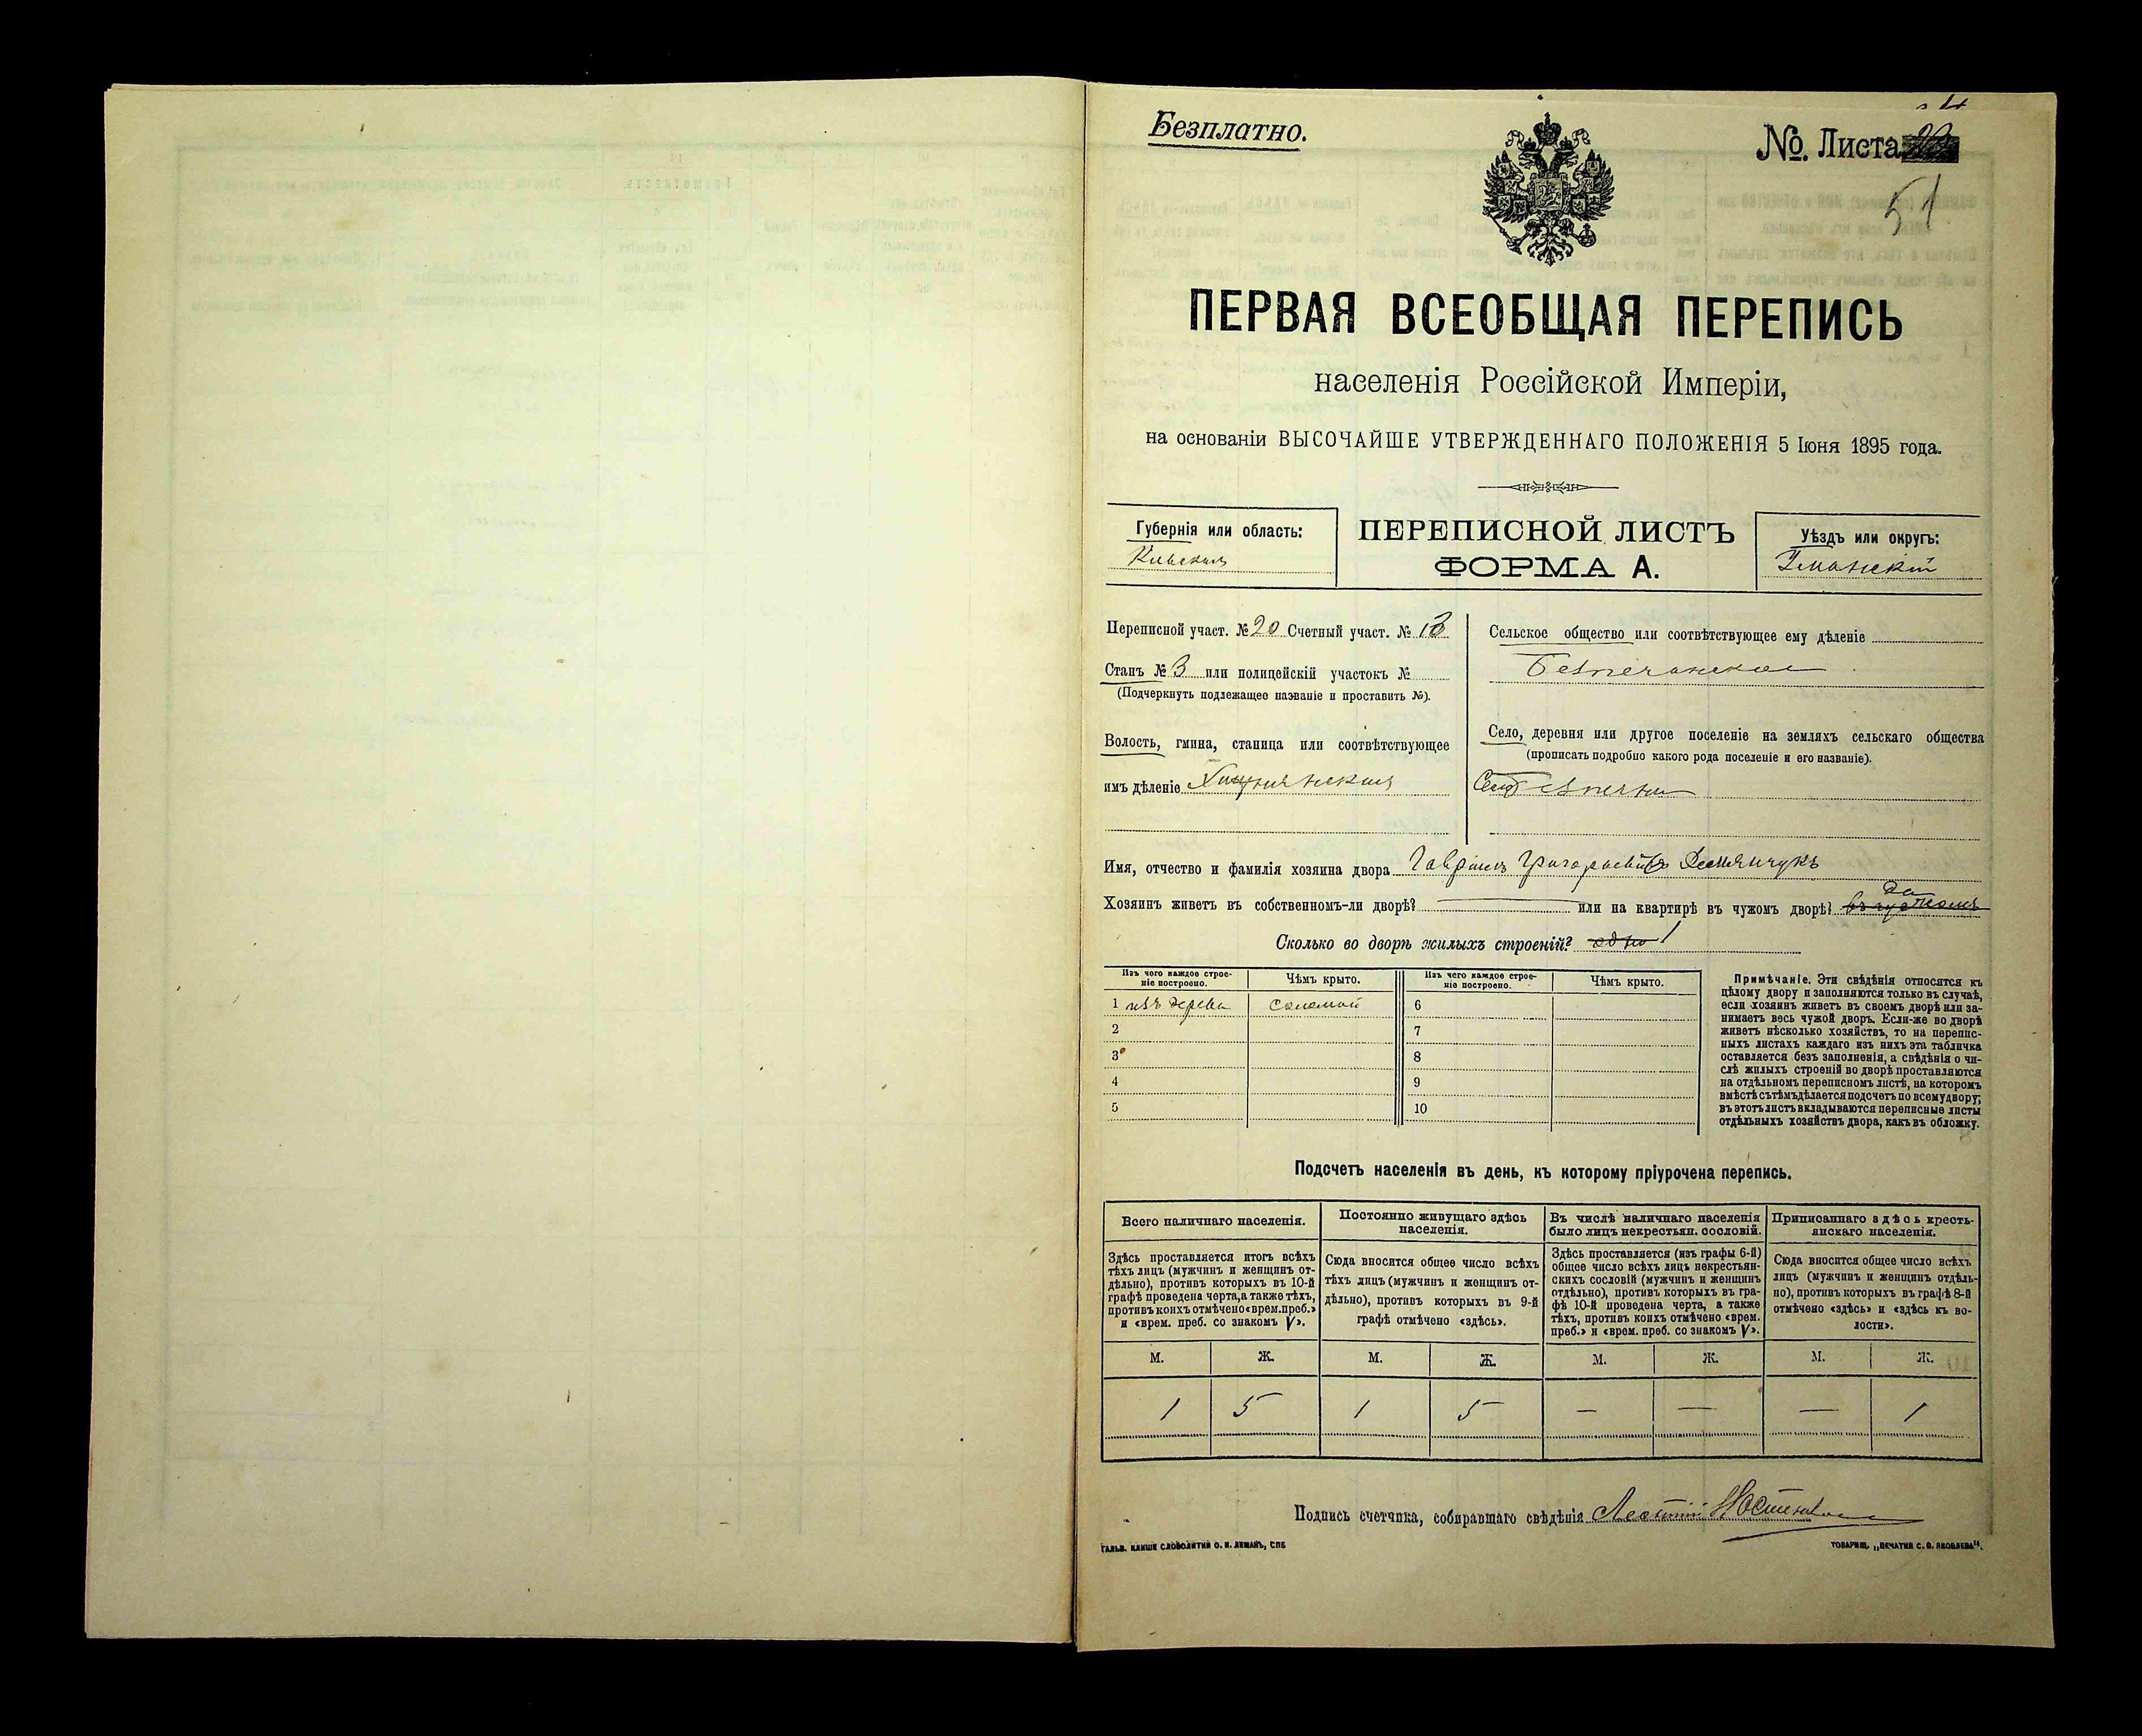 Безплатно.
№. Листа
51
ПЕРВАЯ ВСЕОБЩАЯ ПЕРЕПИСЬ
населенія Россійской Имперіи,
на основаніи ВЫСОЧАЙШЕ УТВЕРЖДЕННАГО ПОЛОЖЕНІЯ 5 Іюня 1895 года.
Губернія или область:
Кіевская
ПЕРЕПИСНОЙ ЛИСТЪ
ФОРМА А.
Уѣздъ или округъ:
Уманскій
Переписной участ. № 20 Счетный участ. № 13
Станъ № 3 или полицейскій участокъ №
(Подчеркнуть подлежащее названіе и проставить №).
Волость, гмина, станица или соотвѣтствующее
имъ дѣленіе
Сельское общество или соотвѣтствующее ему дѣленіе
Безпечанское
Село, деревня или другое поселеніе на земляхъ сельскаго общества
(прописать подробно какого рода поселеніе и его названіе).
Имя, отчество и фамилія хозяина двора Гавріилъ Григорьевичъ Демянчукъ
Хозяинъ живетъ въ собственномъ-ли дворѣ? или на квартирѣ въ чужомъ дворѣ? да
Сколько во дворѣ жилыхъ строеній? одно 1
Изъ чего каждое строе-
ніе построено.
Чѣмъ крыто.
Изъ чего каждое строе-
ніе построено.
Чѣмъ крыто.
1 изъ дерева соломой 6
2 7
3 8
4 9
5 10
Примѣчаніе. Эти свѣдѣнія относятся къ
цѣлому двору и заполняются только въ случаѣ,
если хозяинъ живетъ въ своемъ дворѣ или за-
нимаетъ весь чужой дворъ. Если-же во дворѣ
живетъ нѣсколько хозяйствъ, то на перепис-
ныхъ листахъ каждаго изъ нихъ эта табличка
оставляется безъ заполненія, а свѣдѣнія о чи-
слѣ жилыхъ строеній во дворѣ проставляются
на отдѣльномъ переписномъ листѣ, на которомъ
вмѣстѣ съ тѣмъ дѣлается подсчетъ по всему двору;
въ этотъ листъ вкладываются переписные листы
отдѣльныхъ хозяйствъ двора, какъ въ обложку.
Подсчетъ населенія въ день, къ которому пріурочена перепись.
Всего наличнаго населенія.
Здѣсь проставляется итогъ всѣхъ
тѣхъ лицъ (мужчинъ и женщинъ от-
дѣльно), противъ которыхъ въ 10-й
графѣ проведена черта, а также тѣхъ,
противъ коихъ отмѣчено «врем. преб.»
и «врем. преб. со знакомъ V».
Постоянно живущаго здѣсь
населенія.
Сюда вносится общее число всѣхъ
тѣхъ лицъ (мужчинъ и женщинъ от-
дѣльно), противъ которыхъ въ 9-й
графѣ отмѣчено «здѣсь».
Въ числѣ наличнаго населенія
было лицъ некрестьян. сословій.
Здѣсь проставляется (изъ графы 6-й)
общее число всѣхъ лицъ некрестьян-
скихъ сословій (мужчинъ и женщинъ
отдѣльно), противъ которыхъ въ гра-
фѣ 10-й проведена черта, а также
тѣхъ, противъ коихъ отмѣчено «врем.
преб.» и «врем. преб. со знакомъ V».
Приписаннаго здѣсь кресть-
янскаго населенія.
Сюда вносится общее число всѣхъ
лицъ (мужчинъ и женщинъ отдѣль-
но), противъ которыхъ въ графѣ 8-й
отмѣчено «здѣсь» и «здѣсь къ во-
лости».
М. Ж. М. Ж. М. Ж. М. Ж.
1 5 1 5 — — — 1
Подпись счетчика, собиравшаго свѣдѣнія Леонтій
ГАЛЬВ. КЛИШЕ СЛОВОЛИТНИ О. И. ЛЕМАНЪ, СПБ
ТОВАРИЩ. „ПЕЧАТНЯ С. П. ЯКОВЛЕВА".